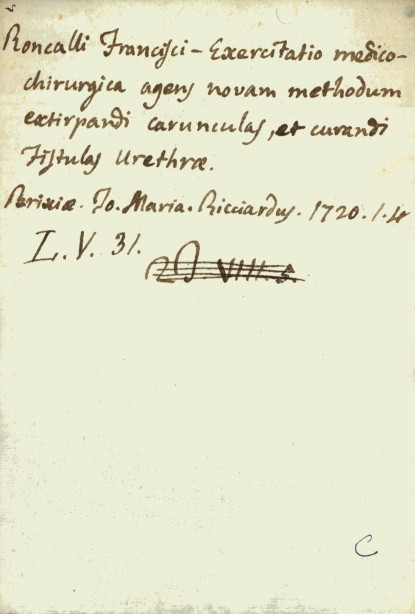 Roncalli Francisci - Exercitatio medico-
chirurgica agens novam methodum
extirpandi carunculas, et curandi
Fistulas Urethræ.
Brixiæ. Jo. Maria. Ricciardus. 1720. 1. 4
L. V. 31.
VIII. 5.
C